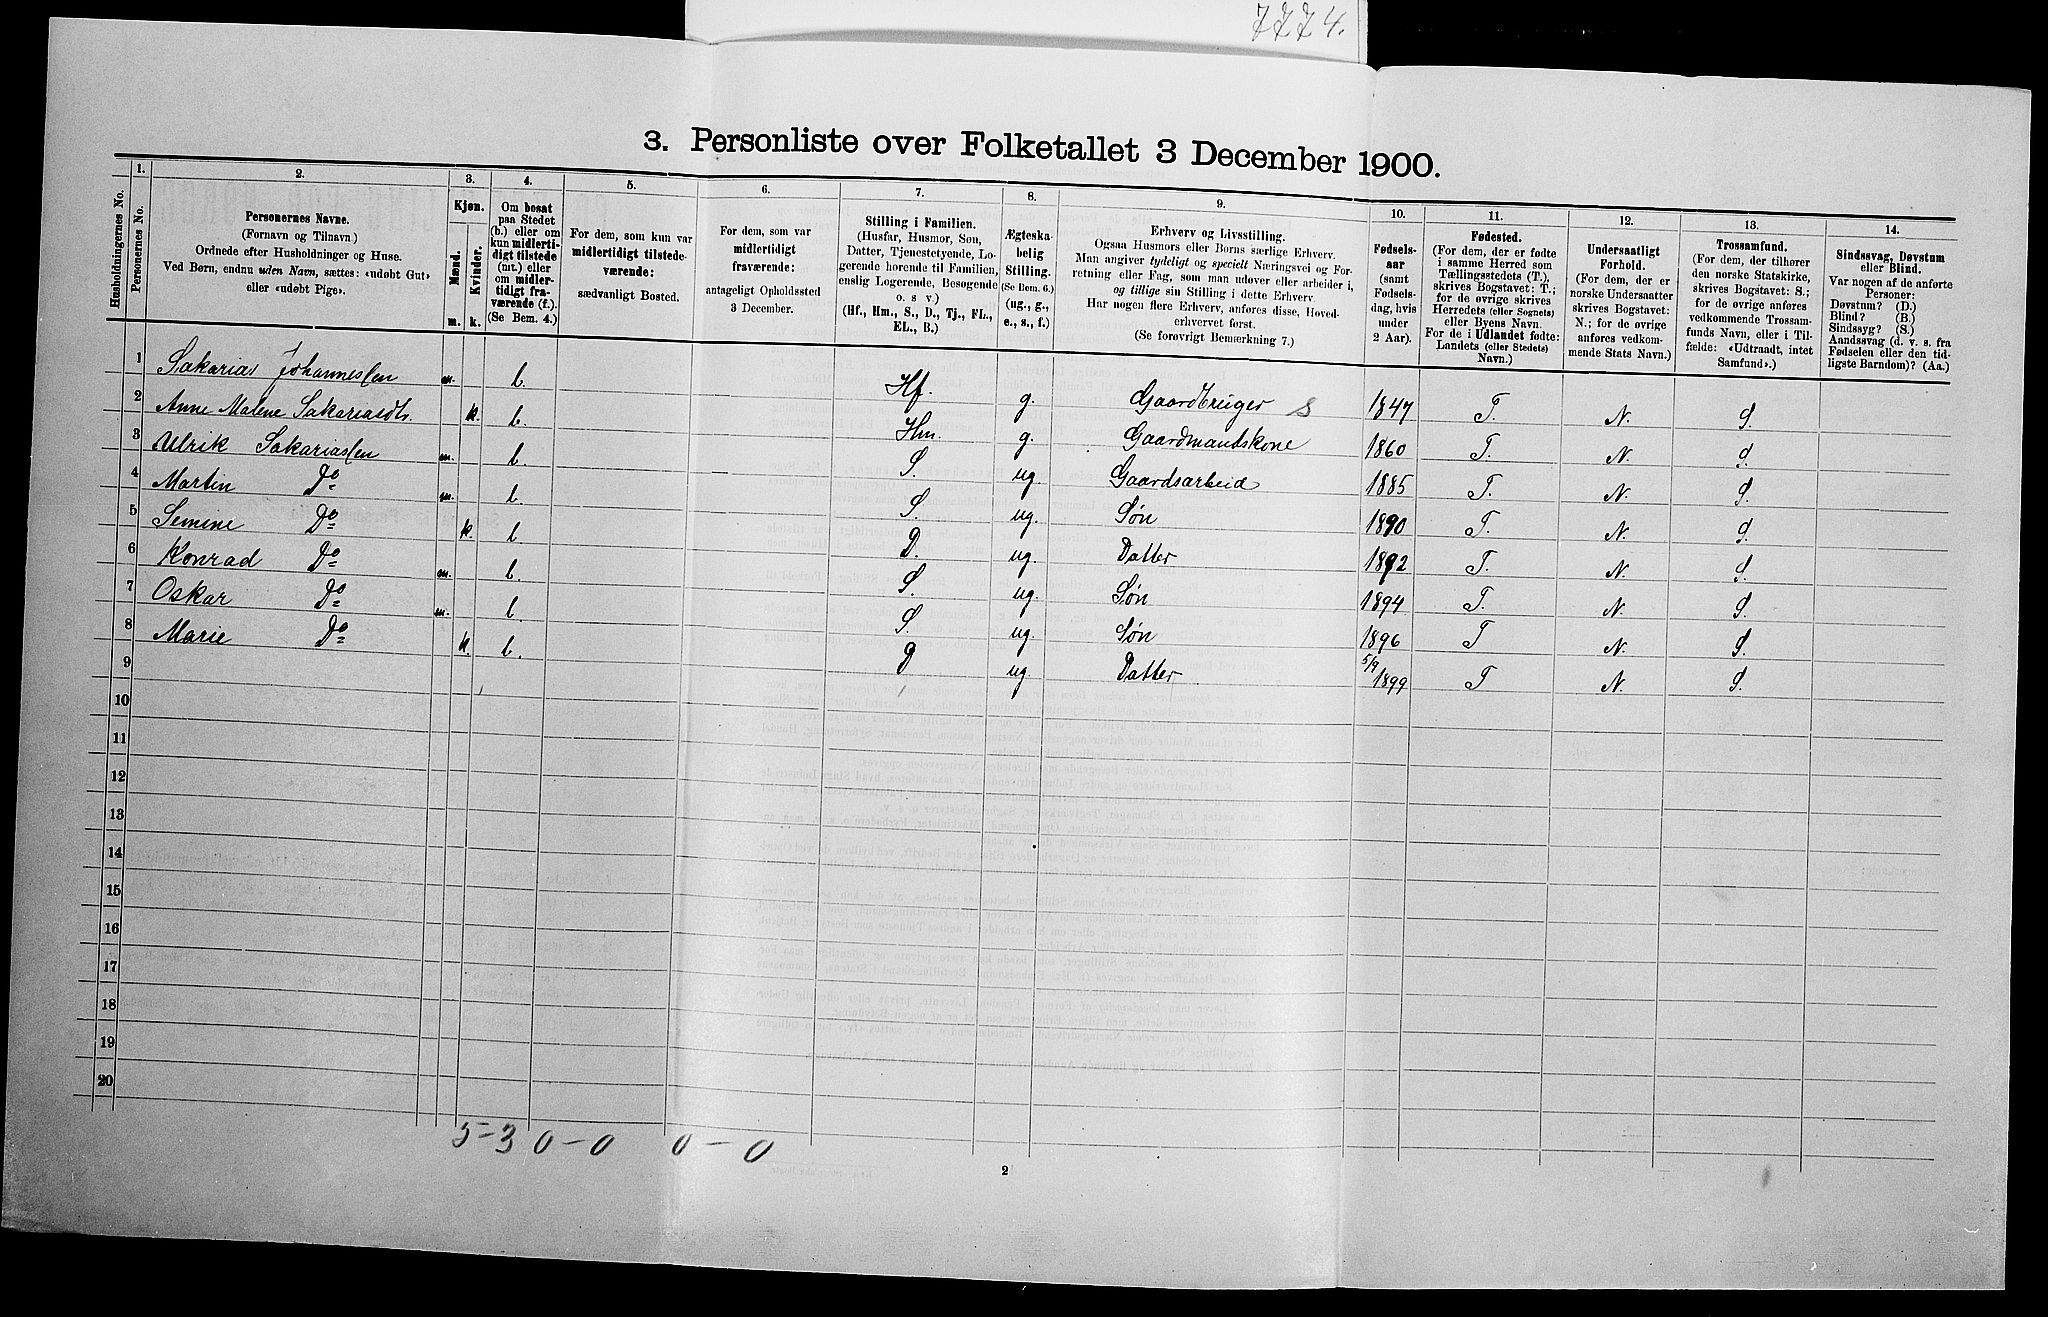 7774.
3. Personliste over Folketallet 3 December 1900.
Husholdningernes No.
1.
Personernes No.
2.
Personernes Navne.
(Fornavn og Tilnavn)
Ordnede efter Husholdninger og Huse.
Ved Børn, endnu uden Navn, sættes: «udøbt Gut»
eller «udøbt Pige».
3.
Kjøn.
Mænd.
Kvinder.
m. k.
4.
Om bosat
paa Stedet
(b.) eller om
kun midlerti-
digt tilstede
(mt.) eller
om midler-
tidigt fra-
værende (f.).
(Se Bem. 4.)
5.
For dem, som kun var
midlertidigt tilstede-
værende:
sædvanligt Bosted.
6.
For dem, som var
midlertidigt
fraværende:
antageligt Opholdssted
3 December.
7.
Stilling i Familien.
(Husfar, Husmor, Søn,
Datter, Tjenestetyende, Lo-
gerende hørende til Familien,
enslig Logerende, Besøgende
o. s v.)
(Hf., Hm., S., D., Tj., FL.,
EL., B.)
8.
Ægteska-
belig
Stilling.
(Se Bem. 6.)
(ug., g.,
e., s., f.)
9.
Erhverv og Livsstilling.
Ogsaa Husmors eller Børns særlige Erhverv.
Man angiver tydeligt og specielt Næringsvei og For-
retning eller Fag, som man udøver eller arbeider i,
og tillige sin Stilling i dette Erhverv.
Har nogen flere Erhverv, anføres disse, Hoved-
erhvervet først.
(Se forøvrigt Bemærkning 7.)
10.
Fødsels-
aar
(samt
Fødsels-
dag, hvis
under
2 Aar).
11.
Fødested.
(For dem, der er fødte
i samme Herred som
Tællingsstedets (T.),
skrives Bogstavet: T.;
for de øvrige skrives
Herredets (eller Sognets)
eller Byens Navn.
For de i Udlandet fødte:
Landets (eller Stedets)
Navn.)
12.
Undersaatligt
Forhold.
(For dem, der er
norske Undersaatter
skrives Bogstavet:
N.; for de øvrige
anføres vedkom-
mende Stats Navn.)
13.
Trossamfund.
(For dem, der tilhører
den norske Statskirke,
skrives Bogstavet: S.;
for de øvrige anføres
vedkommende Trossam-
funds Navn, eller i Til-
fælde: «Udtraadt, intet
Samfund».)
14.
Sindssvag, Døvstum
eller Blind.
Var nogen af de anførte
Personer:
Døvstum? (D.)
Blind? (B.)
Sindssyg? (S.)
Aandssvag (d. v. s. fra
Fødselen eller den tid-
ligste Barndom)? (Aa.)
1 Sakarias Johannessen m. b. Hf. g. Gaardbruger S 1847 T. N. S.
2 Anne Malene Sakariasdtr. k. b. Hm. g. Gaardmandskone 1860 T. N. S.
3 Ulrik Sakariassen m. b. S. ug. Gaardsarbeid 1885 T. N. S.
4 Martin Do m. b. S. ug. Søn 1890 T. N. S.
5 Semine Do k. b. D. ug. Datter 1892 T. N. S.
6 Konrad Do m. b. S. ug. Søn 1894 T. N. S.
7 Oskar Do m. b. S. ug. Søn 1896 T N. S.
8 Marie Do k. b. D ug. Datter 5/9 1899 T N. S.
9
10
11
12
13
14
15
16
17
18
19
20
5-3 0-0 0-0
2